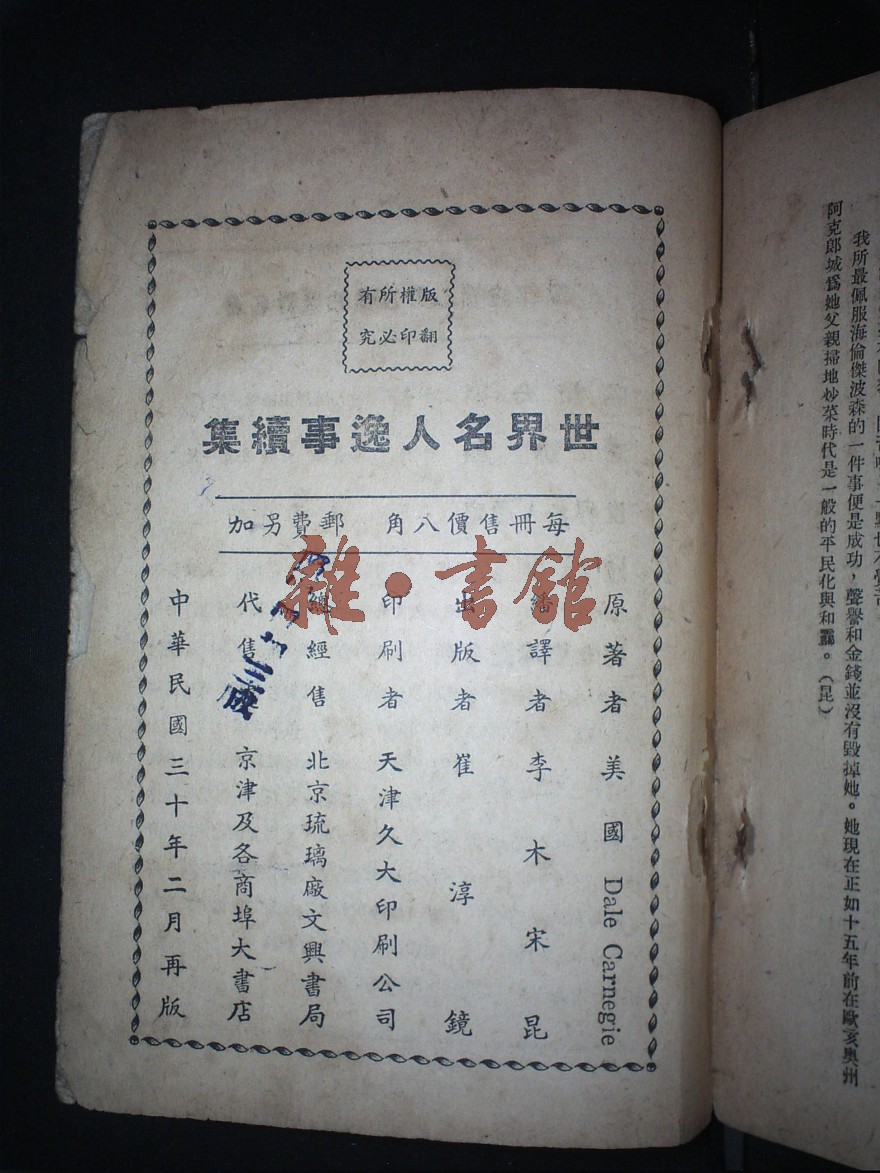 版權所有
翻印必究
世界名人逸事續集
每冊售價八角 郵費另加
原著者 美國 Dale Carnegie
譯者 李木 宋昆
出版者 崔淳鏡
印刷者 天津久大印刷公司
總經售 北京琉璃廠文興書局
代售 京津及各商埠大書店
中華民國三十年二月再版
雜·書館
我所最佩服海倫傑波森的一件事便是成功,聲譽和金錢並沒有毀掉她。她現在正如十五年前在歐亥奧州
阿克郎城爲她父親掃地炒菜時代是一般的平民化與和靄。(昆)